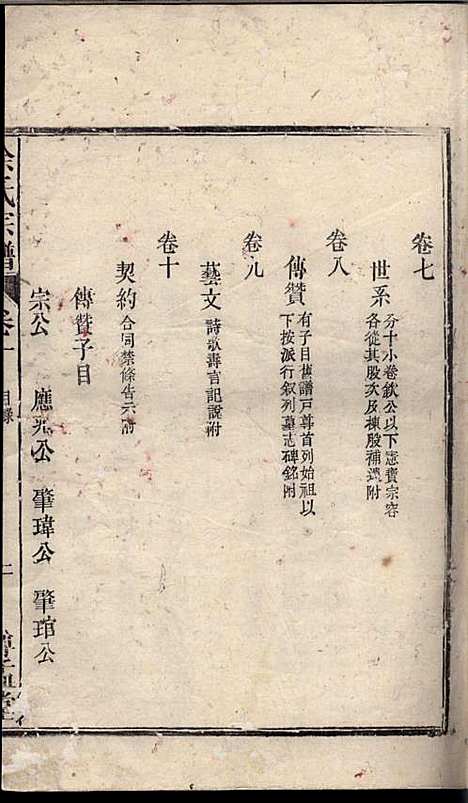 卷七
世系 分十小卷欽公以下憲寶宗容
各從其股次及棟股補遺附
卷八
傳贊 有子目舊譜戸尊首列始祖以
下按派行叙列墓志碑銘附
卷九
藝文 詩歌壽言記說附
卷十
契約 合同禁條告示附
傳贊子目
宗公 應兆公 肇瑋公 肇琯公
氏宗譜 卷 目錄 二